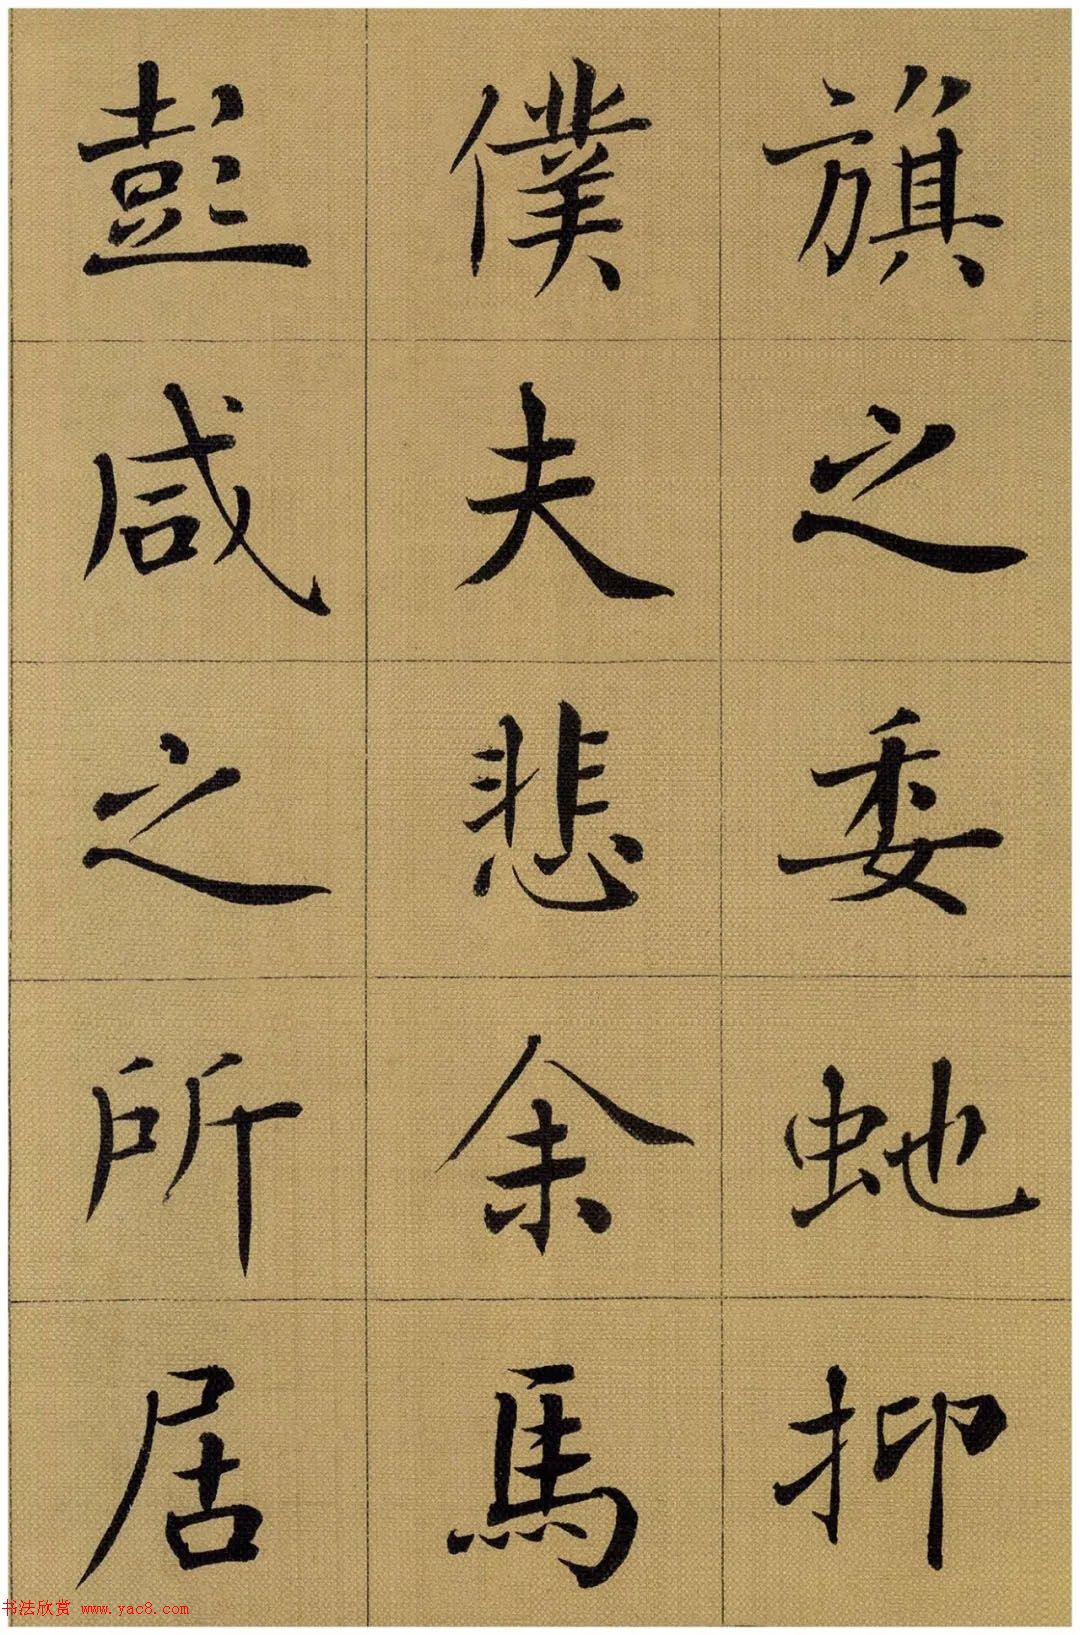 旗之委虵抑
僕夫悲余馬
彭咸之所居
书法欣赏 www.yac8.com